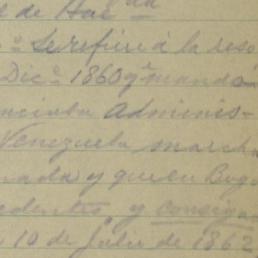 de Hac.da
Se refiere á la reso
Dic.e 1860 q.e mandó
Adminis-
Venezuela march
nada y que en Bog
cedentes y consig
10 de Julio de 1862